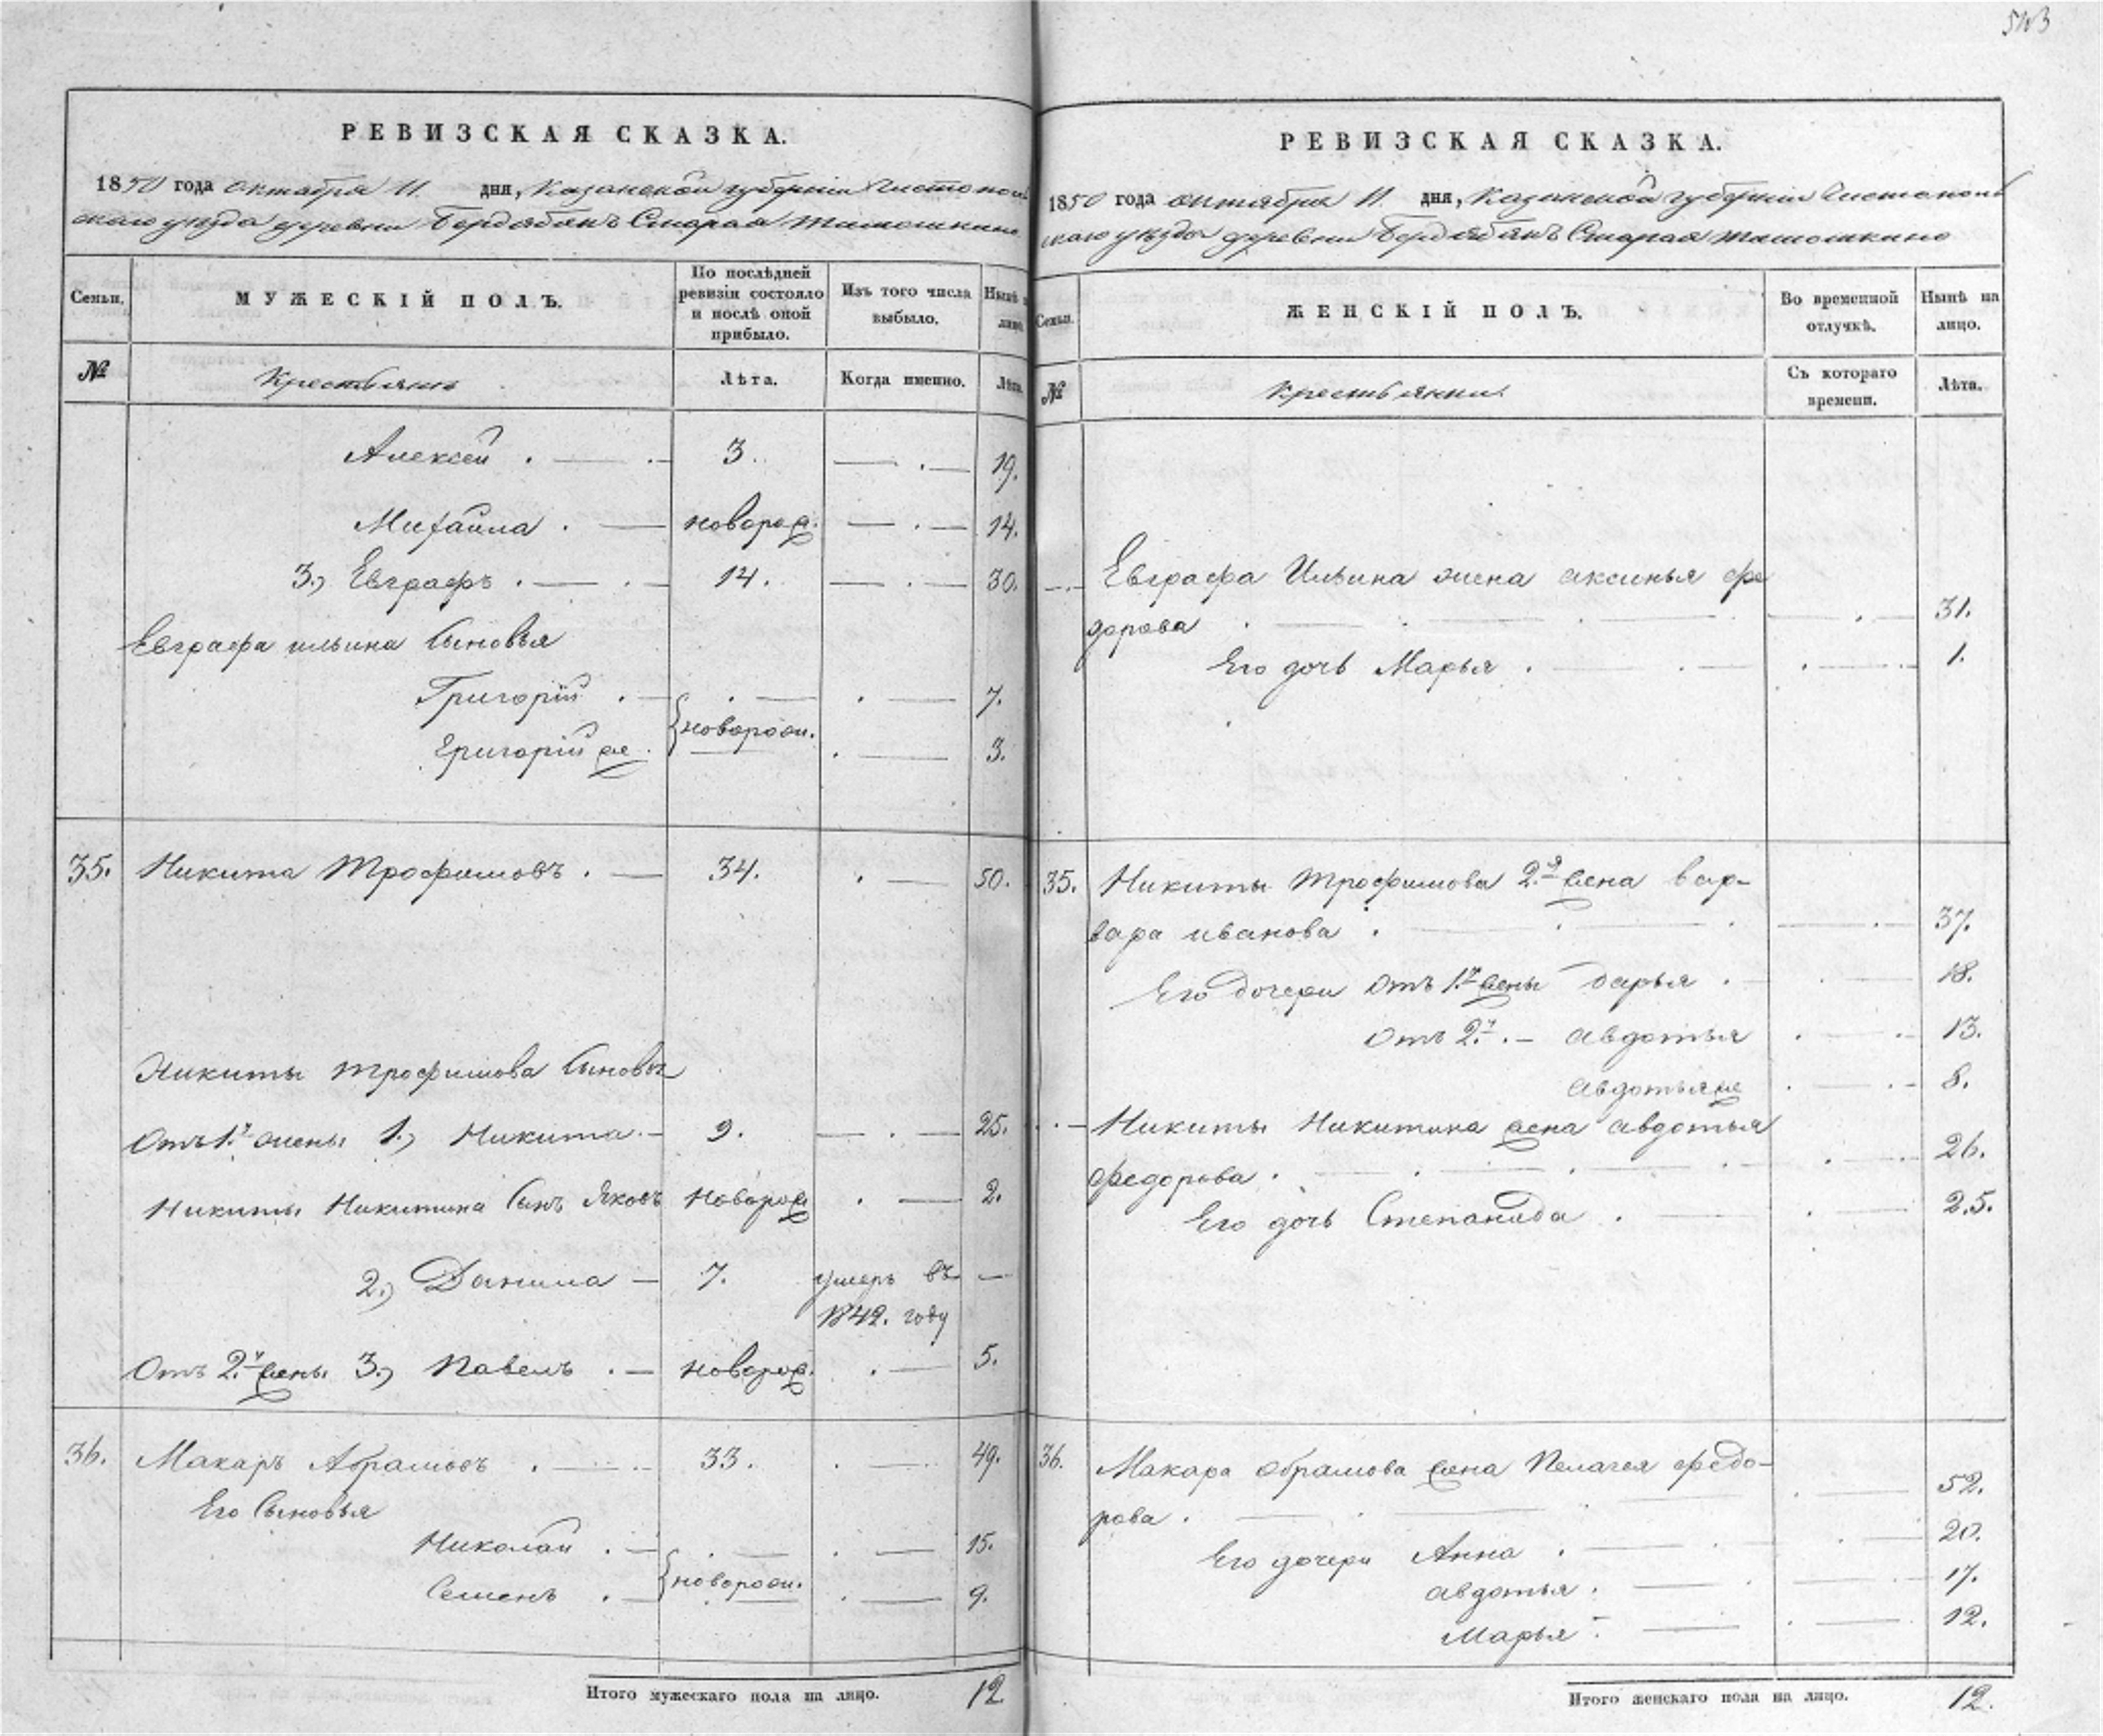 543
РЕВИЗСКАЯ СКАЗКА.
1850 года октября 11. дня, Казанской губернии Чистополь
скаго уезда деревни Бердебякъ Старая тимошкино
Семьи. МУЖЕСКІЙ ПОЛЪ. По послѣдней ревизіи состояло и послѣ оной прибыло. Изъ того числа выбыло. Нынѣ на лицо.
№ Крестьянъ Лѣта. Когда именно. Лѣта.
Алексей . — 3. — . — 19.
Михайла . — новорож. — . — 14.
3.) Евграфъ . — 14. — . — 30.
Евграфа ильина сыновья
Григорій . — . — . — 7.
новорожд.
Григорій же . . — 3.
35. Никита Трофимовъ . — 34. . — 50.
Никиты трофимова сыновья
Отъ 1.й жены 1.) Никита . — 9. — . — 25.
Никиты Никитина сынъ Яковъ новорож . — 2.
2.) Данила — 7. умеръ въ —
1842. году
Отъ 2.й жены 3.) Павелъ . — новорож. . — 5.
36. Макаръ Абрамовъ . — 33. . — 49.
Его сыновья
Николай . — . — . — 15.
новорожд.
Семенъ . — . — 9.
Итого мужескаго пола на лицо. 12
РЕВИЗСКАЯ СКАЗКА.
1850 года октября 11. дня, Казанской губернии Чистополь
скаго уезда деревни Бердебякъ Старая тимошкино
Семьи. ЖЕНСКІЙ ПОЛЪ. Во временной отлучкѣ. Нынѣ на лицо.
№ Крестьянки Съ котораго времени. Лѣта.
Евграфа Ильина жена аксинья фе
дорова . — 31.
Его дочь Марья . — 1.
35. Никиты трофимова 2.я жена вар-
вара иванова . — 37.
Его дочери отъ 1.й жены дарья . — 18.
отъ 2.й . — авдотья . — 13.
авдотья же . — 8.
Никиты Никитина жена авдотья
федорова . — 26.
Его дочь Степанида . — 2.5.
36. Макара абрамова жена Пелагея федо-
рова . — 52.
Его дочери Анна . — 20.
авдотья . — 17.
Марья . — 12.
Итого женскаго пола на лицо. 12.